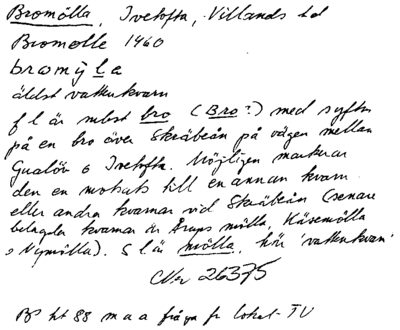 Bromölla, Ivetofta, Villands hd
Bromølle 1460
bromỳla
äldst vattenkvarn
f l är subst bro (Bro?) med syftn
på en bro över Skräbeån på vägen mellan
Gualöv o Ivetofta. Möjligen markerar
den en motsats till en annan kvarn
eller andra kvarnar vid Skräbeån (senare
belagda kvarnar är Årups mölla, Käsemölla
o Nymölla). S l är mölla, här 'vattenkvarn'
CNr 26375
ht 88 m a a fråga fr lokal-TV